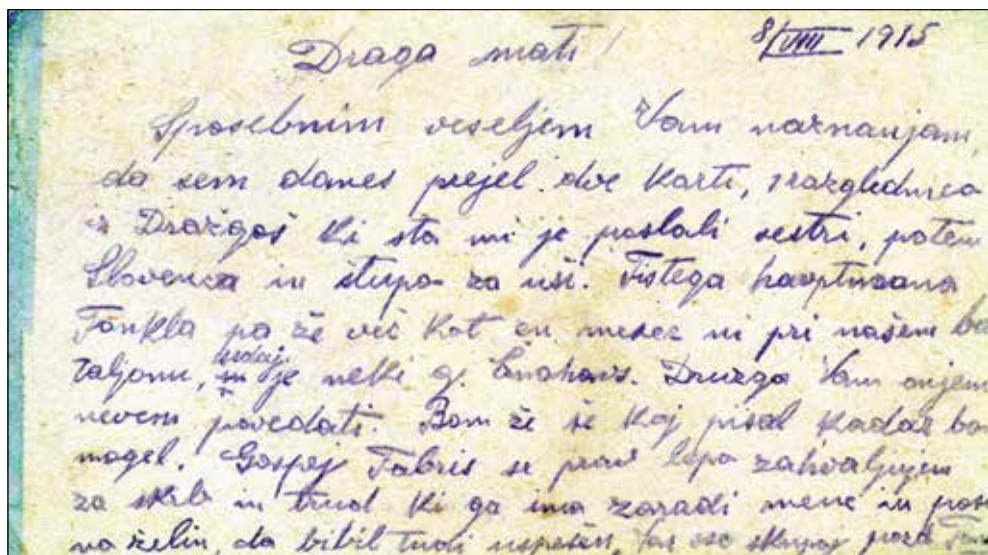 8/VIII 1915
Draga mati!
Sposebnim veseljem Vam naznanjam,
da sem danes prejel dve karti, 1 razglednica
iz Dražgoš ki sta mi je poslali sestri, potem
Slovenca in štupo za uši. Tistega hauptmana
Tonkla pa že več kot en mesec ni pri našem ba
taljonu, sedaj je neki g. Druzga Vam
nevem povedati. Bom že še kaj pisal kadar bo
mogel. Gospej Fabris se prav lepo zahvaljujem
za skrb in trud ki ga ima zaradi mene in
želim, da bi bil tudi uspešen, Vas vse skupaj